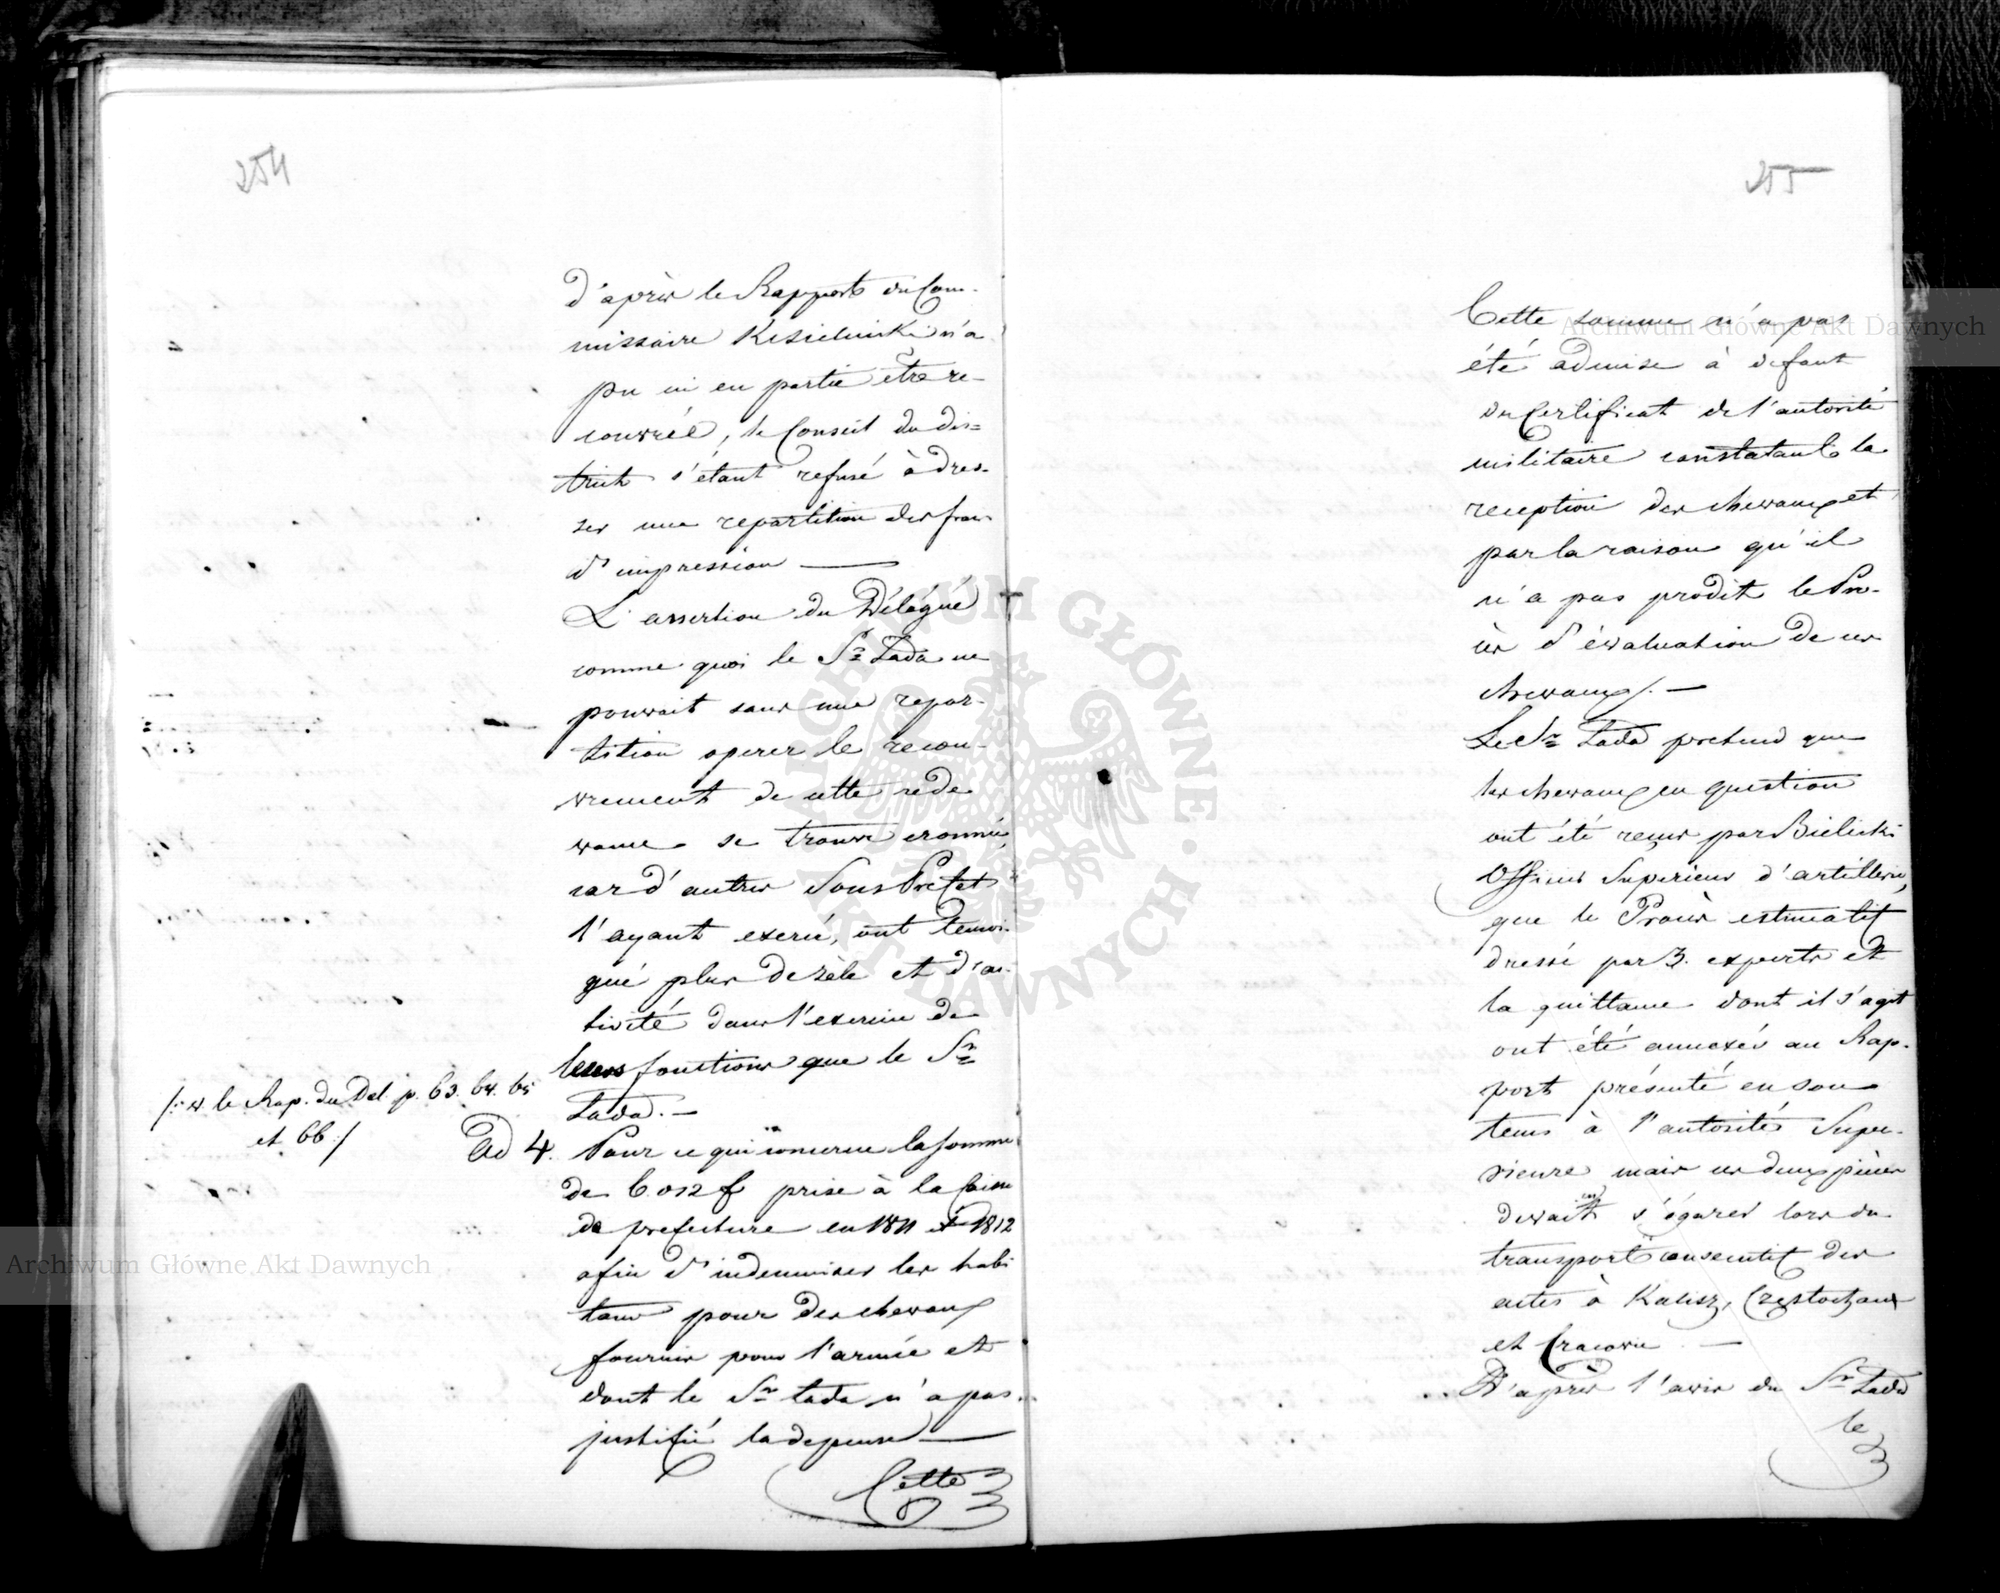 254
d'après le Rapport du Com-
missaire Kisielnicki n'a
pu ni en partie être re-
couvréé, le Conseil du dis=
trict s'étant refusé à dres-
ser une repartition des frais
d'impression —
L'assertion du Délégué
comme quoi le Sr Łada ne
pouvait sans une repar-
tition operer le recou-
vrement de cette rede
vance se trouve eronnée,
car d'autres Sous Prefet
l'ayant exercé, ont temoi-
gné plus de zèle et d'ac-
tivité dans l'exercice de
leurs fonctions que le Sr
Łada. —
/: v. le Rap. du Del. p. 63. 64. 65
et 66 :/
Ad 4. Pour ce qui concerne la somme
de 6.012 f prise à la Caisse
de prefecture en 1811 et 1812
afin d'indemniser les habi
tans pour des chevaux
fournis pour l'armée et
dont le Sr Łada n'a pas
justifié la depense —
Cette
255
Cette somme n'a pas
été admise à defaut
du Certificat de l'autorité
militaire constatant la
reception des chevaux et
par la raison qu'il
n'a pas prodit le Pro-
cès d'évaluation de ces
chevaux. —
Le Sr Łada pretend que
les chevaux en question
ont été reçus par Bielicki
Officier Superieur d'artillerie,
que le Procès estimatif
dressé par 3. experts et
la quittance dont il s'agit
ont été annexés au Rap-
port présenté en son
tems à l'autorités Supe-
rieure mais ces deux pièces
devait s'égarer lors du
transport consecutif des
actes à Kalisz, Częstochau
et Cracovie. —
D'après l'avis du Sr Łada
le
Archiwum Główne Akt Dawnych
Archiwum Główne Akt Dawnych
ARCHIWUM GŁÓWNE · AKT DAWNYCH ·